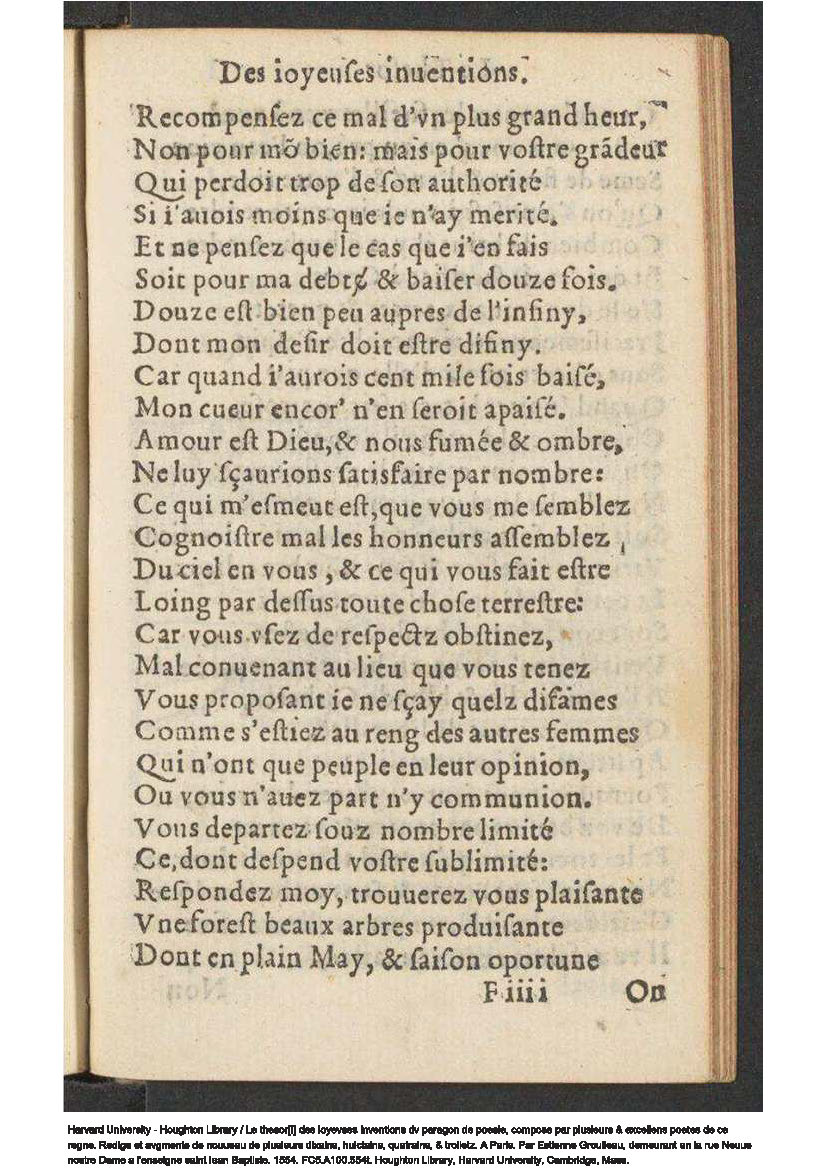 Des ioyeuſes inuentions.
Recompenſez ce mal d'vn plus grand heur,
Non pour mõ bien: mais pour voſtre grãdeur
Qui perdoit trop de ſon authorité
Si i'auois moins que ie n'ay merité.
Et ne penſez que le cas que i'en fais
Soit pour ma debtę & baiſer douze fois.
Douze eſt bien peu aupres de l'infiny,
Dont mon deſir doit eſtre difiny.
Car quand i'aurois cent mile fois baiſé,
Mon cueur encor' n'en ſeroit apaiſé.
Amour eſt Dieu, & nous fumée & ombre,
Ne luy ſçaurions ſatisfaire par nombre:
Ce qui m'eſmeut eſt, que vous me ſemblez
Cognoiſtre mal les honneurs aſſemblez,
Du ciel en vous, & ce qui vous fait eſtre
Loing par deſſus toute choſe terreſtre:
Car vous vſez de reſpectz obſtinez,
Mal conuenant au lieu que vous tenez
Vous propoſant ie ne ſçay quelz difames
Comme s'eſtiez au reng des autres femmes
Qui n'ont que peuple en leur opinion,
Ou vous n'auez part n'y communion.
Vous departez ſouz nombre limité
Ce, dont deſpend voſtre ſublimité:
Reſpondez moy, trouuerez vous plaiſante
Vne foreſt beaux arbres produiſante
Dont en plain May, & ſaiſon oportune
F iiii On
Harvard University - Houghton Library / Le thesor[!] des ioyevses inventions dv paragon de poesie, compose par plusieurs & excellens poetes de ce
regne. Redige et avgmente de nouueau de plusieurs dixains, huictains, quatrains, & trolletz. A Paris. Par Estienne Groulleau, demeurant en la rue Neuue
nostre Dame a l'enseigne saint Iean Baptiste. 1554. FC5.A100.554t. Houghton Library, Harvard University, Cambridge, Mass.